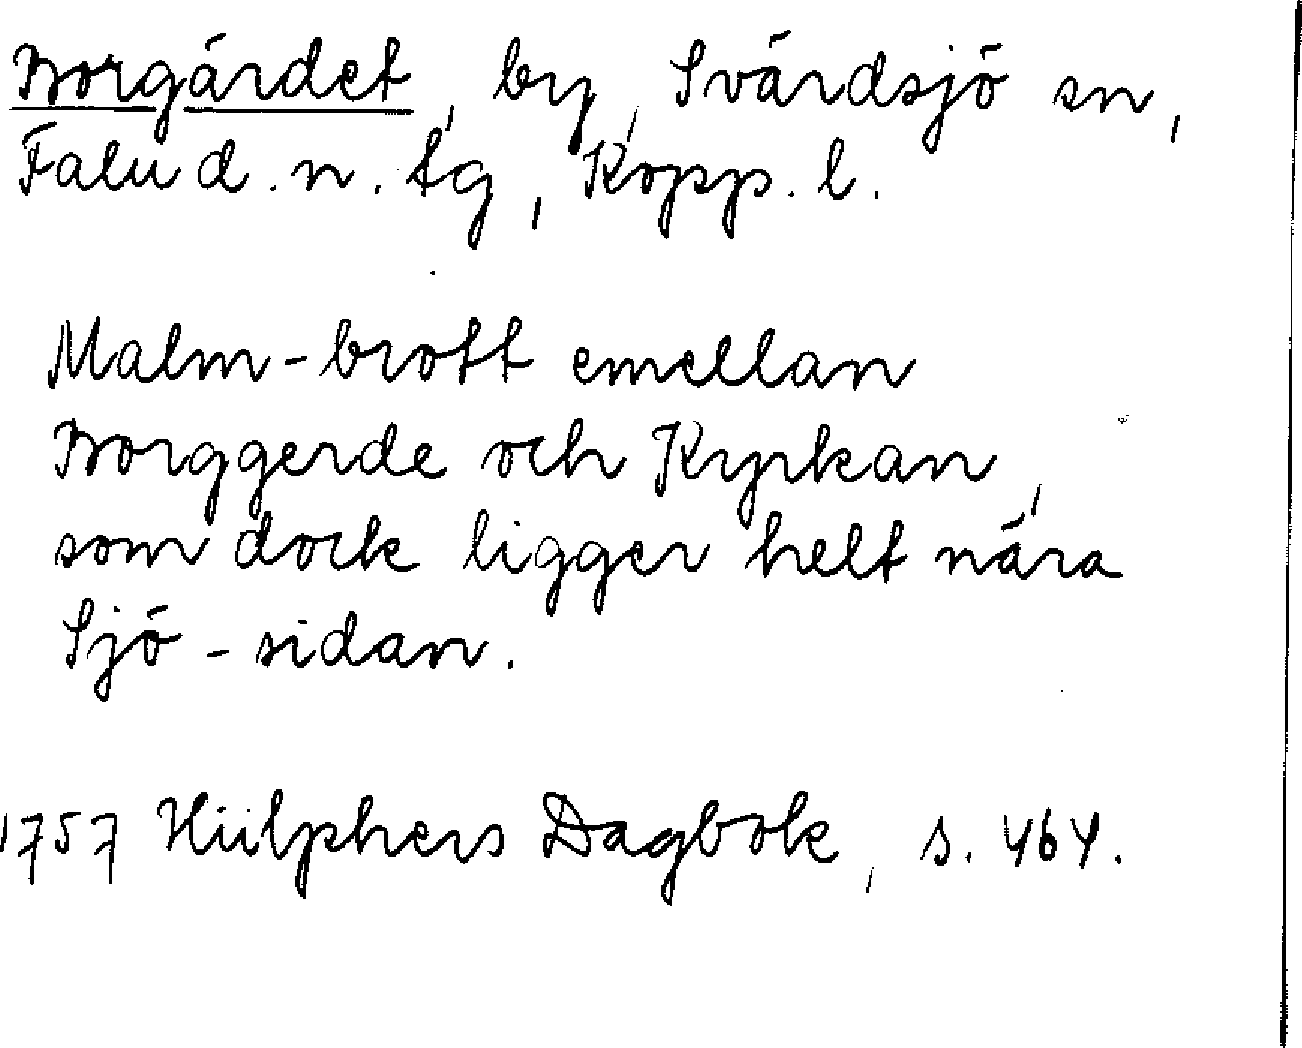 Borgärdet, by, Svärdsjö sn,
Falu d. n. tg, Kopp. l.
Malm-brott emellan
Borggerde och Kyrkan,
som dock ligger helt nära
Sjö-sidan.
1757 Hülphers Dagbok, s. 464.